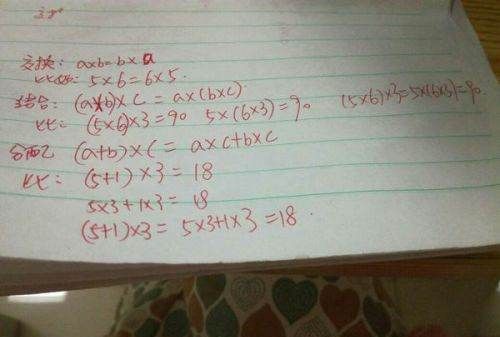 交换: a×b=b×a
比如: 5×6=6×5.
结合: (a×b)×c=a×(b×c)
比: (5×6)×3=90 5×(6×3)=90 (5×6)×3=5×(6×3)=90
分配 (a+b)×c=a×c+b×c
比: (5+1)×3=18
5×3+1×3=18
(5+1)×3=5×3+1×3=18.